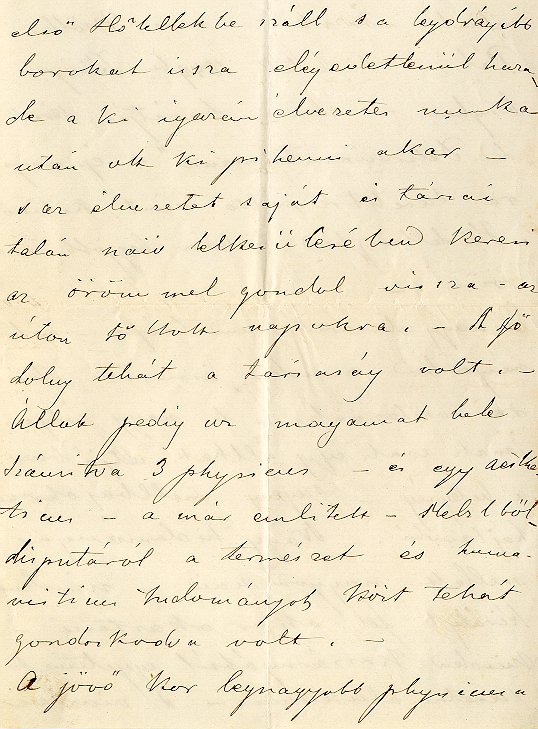 első Hôtellekbe száll s a legdrágább
borokat issza elégedetlenül haza
de a ki igazán élvezetes munka
után ott ki pihenni akar –
s az élvezetet saját és társai
talán naiv lelkesülésében keresi
az örömmel gondol vissza – az
úton töltött napokra. – A fő
dolog tehát a társaság volt. –
Állott pedig ez magamat bele
számitva 3 physicus – és egy aesthe-
ticus – a már emlitett – ből
disputáról a természet és huma-
nisticus tudományok közt tehát
gondoskodva volt. –
A jövő kor legnagyobb physicusa